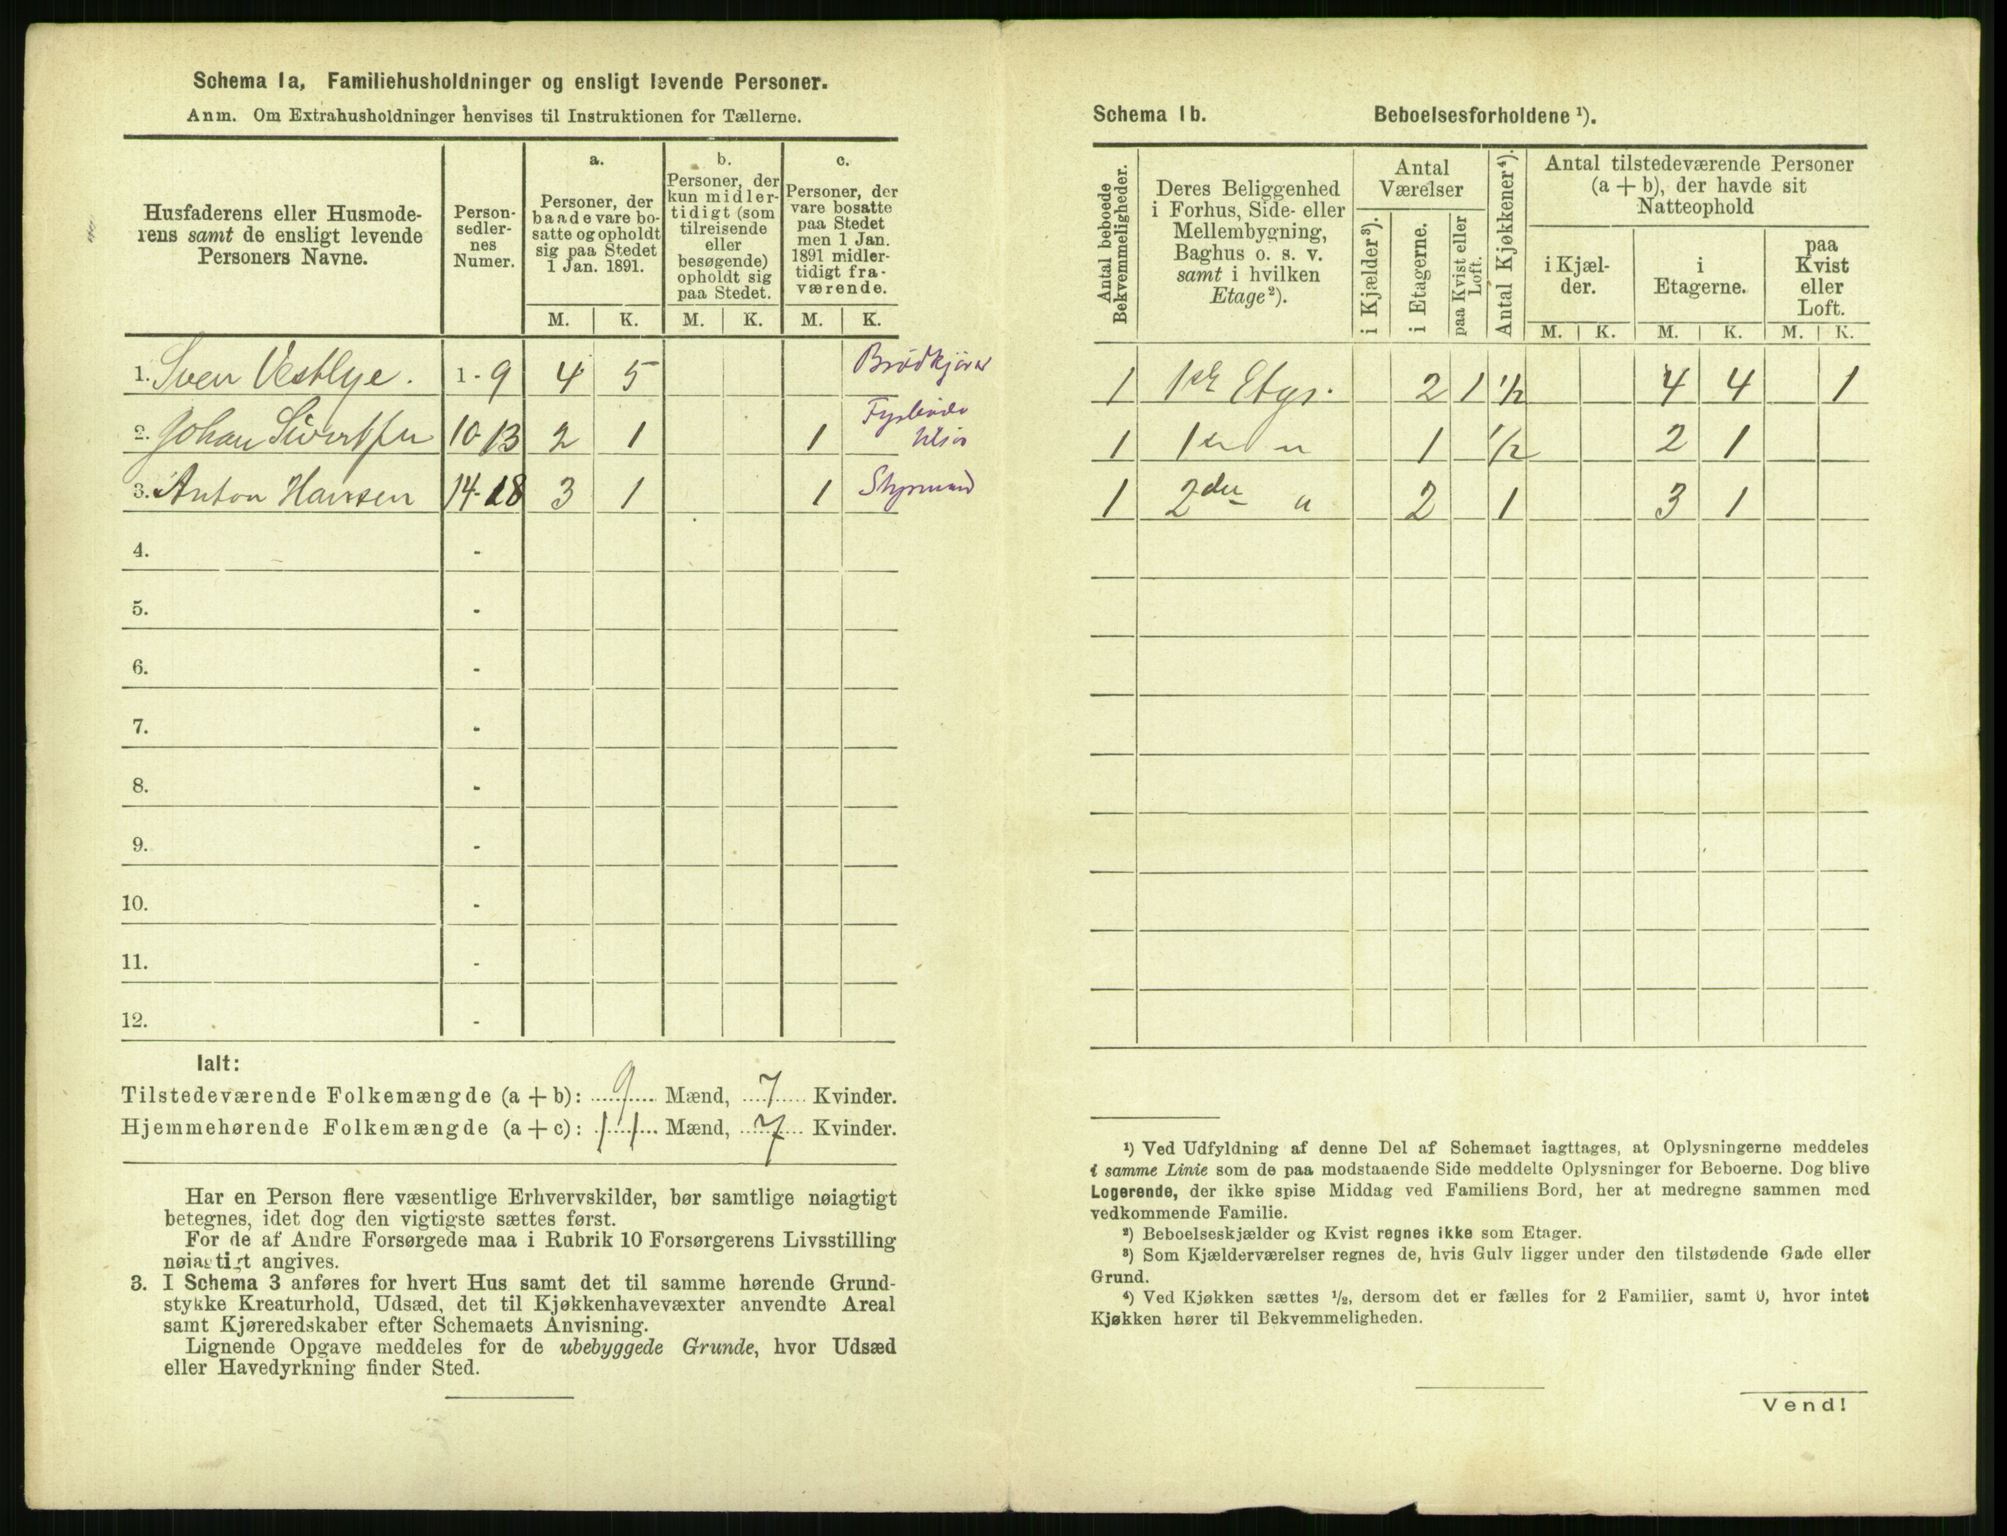 Schema 1a, Familiehusholdninger og ensligt levende Personer.
Anm. Om Extrahusholdninger henvises til Instruktionen for Tællerne.
Husfaderens eller Husmode-
rens samt de ensligt levende
Personers Navne.
Person-
sedler-
nes
Numer.
a.
Personer, der
baade vare bo-
satte og opholdt
sig paa Stedet
1 Jan. 1891.
b.
Personer, der
kun midler-
tidigt (som
tilreisende
eller
besøgende)
opholdt sig
paa Stedet.
c.
Personer, der
vare bosatte
paa Stedet
men 1 Jan.
1891 midler-
tidigt fra-
værende.
M. K. M. K. M. K.
1. Sven Vestlye. 1 - 9 4 5 Brødkjører
2. Johan Sivertsen 10-13 2 1 1
3. Anton Hansen 14-18 3 1 1 Styrmand
4. -
5. -
6. -
7. -
8. -
9. -
10. -
11. -
12. -
Ialt:
Tilstedeværende Folkemængde (a + b): 9 Mænd, 7 Kvinder.
Hjemmehørende Folkemængde (a + c): 11 Mænd, 7 Kvinder.
Har en Person flere væsentlige Erhvervskilder, bør samtlige nøiagtigt
betegnes, idet dog den vigtigste sættes først.
For de af Andre Forsørgede maa i Rubrik 10 Forsørgerens Livsstilling
nøiagtigt angives.
3. I Schema 3 anføres for hvert Hus samt det til samme hørende Grund-
stykke Kreaturhold, Udsæd, det til Kjøkkenhavevæxter anvendte Areal
samt Kjøreredskaber efter Schemaets Anvisning.
Lignende Opgave meddeles for de ubebyggede Grunde, hvor Udsæd
eller Havedyrkning finder Sted.
Schema 1b. Beboelsesforholdene ¹).
Antal beboede
Bekvemmeligheder.
Deres Beliggenhed
i Forhus, Side- eller
Mellembygning,
Baghus o. s. v.
samt i hvilken
Etage²).
Antal
Værelser
i Kjælder³).
i Etagerne.
paa Kvist eller
Loft.
Antal Kjøkkener⁴).
Antal tilstedeværende Personer
(a + b), der havde sit
Natteophold
i Kjæl-
der.
i
Etagerne.
paa
Kvist
eller
Loft.
M. K. M. K. M. K.
1 1ste Etgs. 2 1 ½ 4 4 1
1 1ste " 1 ½ 2 1
1 2den " 2 1 3 1
¹) Ved Udfyldning af denne Del af Schemaet iagttages, at Oplysningerne meddeles
i samme Linie som de paa modstaaende Side meddelte Oplysninger for Beboerne. Dog blive
Logerende, der ikke spise Middag ved Familiens Bord, her at medregne sammen med
vedkommende Familie.
²) Beboelseskjælder og Kvist regnes ikke som Etager.
³) Som Kjælderværelser regnes de, hvis Gulv ligger under den tilstødende Gade eller
Grund.
⁴) Ved Kjøkken sættes ½, dersom det er fælles for 2 Familier, samt 0, hvor intet
Kjøkken hører til Bekvemmeligheden.
Vend!